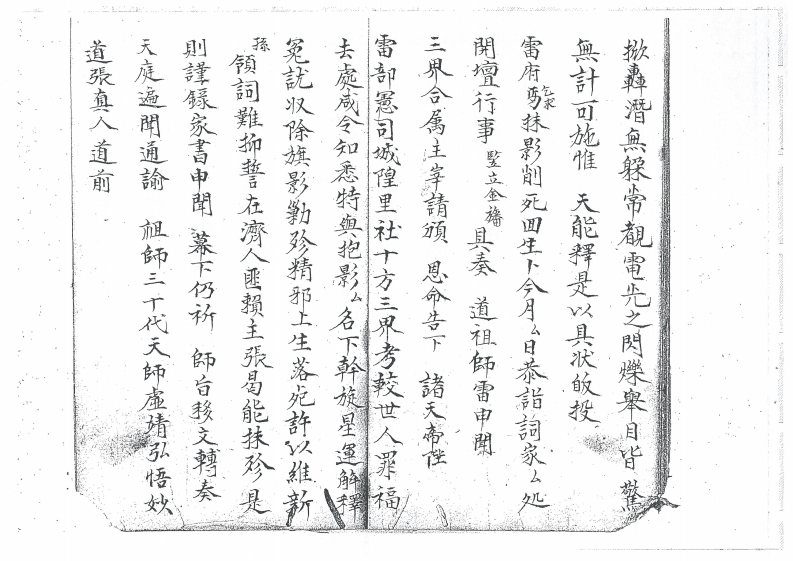 掀轟潛無躱常覩電光之閃爍舉目皆驚
無計可施惟 天能釋是以具狀皈投
雷府丐乞求抹影削死回生卜今月ム日恭詣詞家ム処
開壇行事 豎立金旛 具奏 道祖師雷申聞
三界合属主宰請頒 恩命告下 諸天帝陛
雷部憲司城隍里社十方三界考較世人罪福
去處咸令知悉特與抱影ム名下斡旋星運解釋
冤訧收除旗影勦殄精邪上生落死許以維新
孫領詞難抑誓在濟人匪賴主張曷能抹殄是
則謹錄家書申聞 幕下仍祈 師旨移文轉奏
天庭遍聞通諭 祖師三十代天師虛靖弘悟妙
道張真人道前